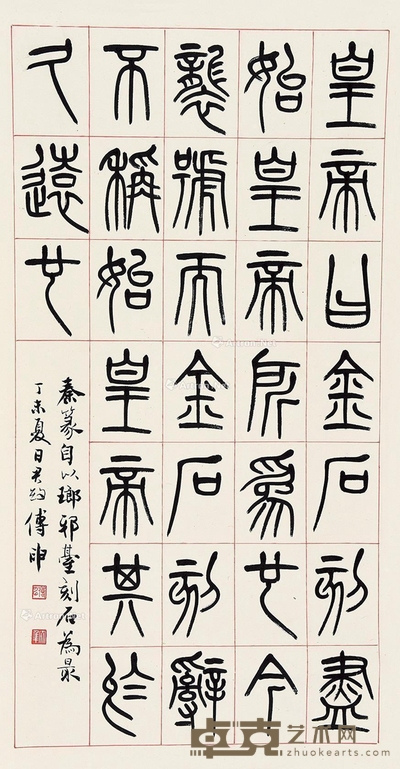 皇帝曰金石刻盡
始皇帝所爲也今
襲號而金石刻辭
不稱始皇帝其於
久遠也
秦篆自以瑯邪臺刻石為最
丁未夏日君約傅申
卓克艺术网
zhuokearts.com